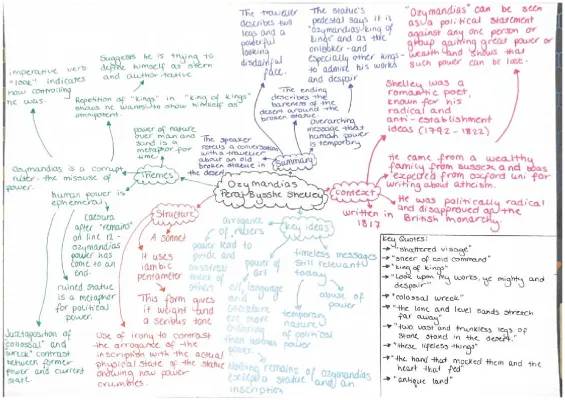 The traveller
describes two
legs and a
powerful
looking
disdainful
face.
The statue's
pedestal says it is
"ozymandias-king of
kings" and as the
onlooker - and
especially other kings -
to admire his works
and despair
"Ozymandias" can be seen
as a political statement
against any one person or
group gaining great power or
wealth and shows that
such power can be lost.
Suggests he is trying to
define himself as stern
and authoritative
imperative verb
"look" indicates
how controlling
he was.
Repetition of "kings" in "king of kings"
shows he wants to show himself as
omnipotent.
The ending
describes the
bareness of the
desert around the
broken statue.
Overarching
message that
human power
is temporary
Shelley was a
romantic poet,
known for his
radical and
anti-establishment
ideas (1792-1822)
power of nature
over man and
sand is a
metaphor for
time.
The speaker
recalls a conversation
with a traveller
about an old
broken statue in
the desert
Summary
Ozymandias is a corrupt
ruler - the misuse of
power.
Themes
Ozymandias
Percy Bysshe Shelley
context
He came from a wealthy
family from sussex and was
expelled from oxford uni for
writing about atheism.
He was politically radical
and disapproved of the
British monarchy.
written in
1817
human power is
ephemeral
caesura
after "remains"
on line 12 -
ozymandias
power has
come to an
end.
ruined statue is
a metaphor
for political
power.
Juxtaposition of
"colossal" and
"wreck" contrast
between former
power and current
state
Structure
A sonnet
It uses
iambic
pentameter
This form gives
it weight and
a serious tone
Use of irony to contrast
the arrogance of the
inscription with the actual
physical state of the statue
showing how power
crumbles.
key ideas
arrogance
of rulers
power lead to
pride and
others
power of
art
art, language
and
are more
enduring
than
power.
Nothing remains of ozymandias
except a statue and an
inscription
timeless messages
still relevant
today
temporary
nature
of
power
abuse of
power
Key Quotes:
→ "shattered visage"
→ "sneer of cold command"
→ "king of kings"
→ "Look upon my works, ye mighty and
despair"
→ "colossal wreck"
→ "the lone and level sands stretch
far away"
→ "two vast and trunkless legs of
stone stand in the desert."
→ "these lifeless things"
→ "the hand that mocked them and the
heart that fed"
→ "antique land"